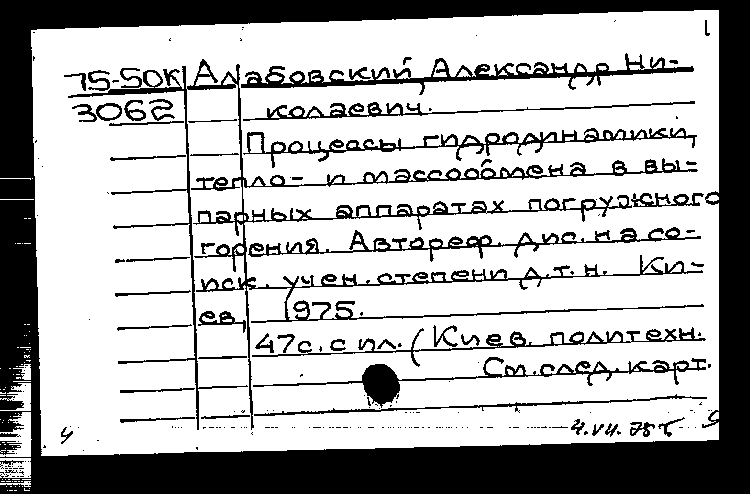 1
75-50К Алабовский, Александр Ни-
3062 колаевич.
Процессы гидродинамики,
тепло- и массообмена в вы-
парных аппаратах погружного
горения. Автореф. дис. на со-
иск. учен. степени д.т.н. Ки-
ев, 1975.
47с. с ил. (Киев. политехн.
См. след. карт.
4.VII.75